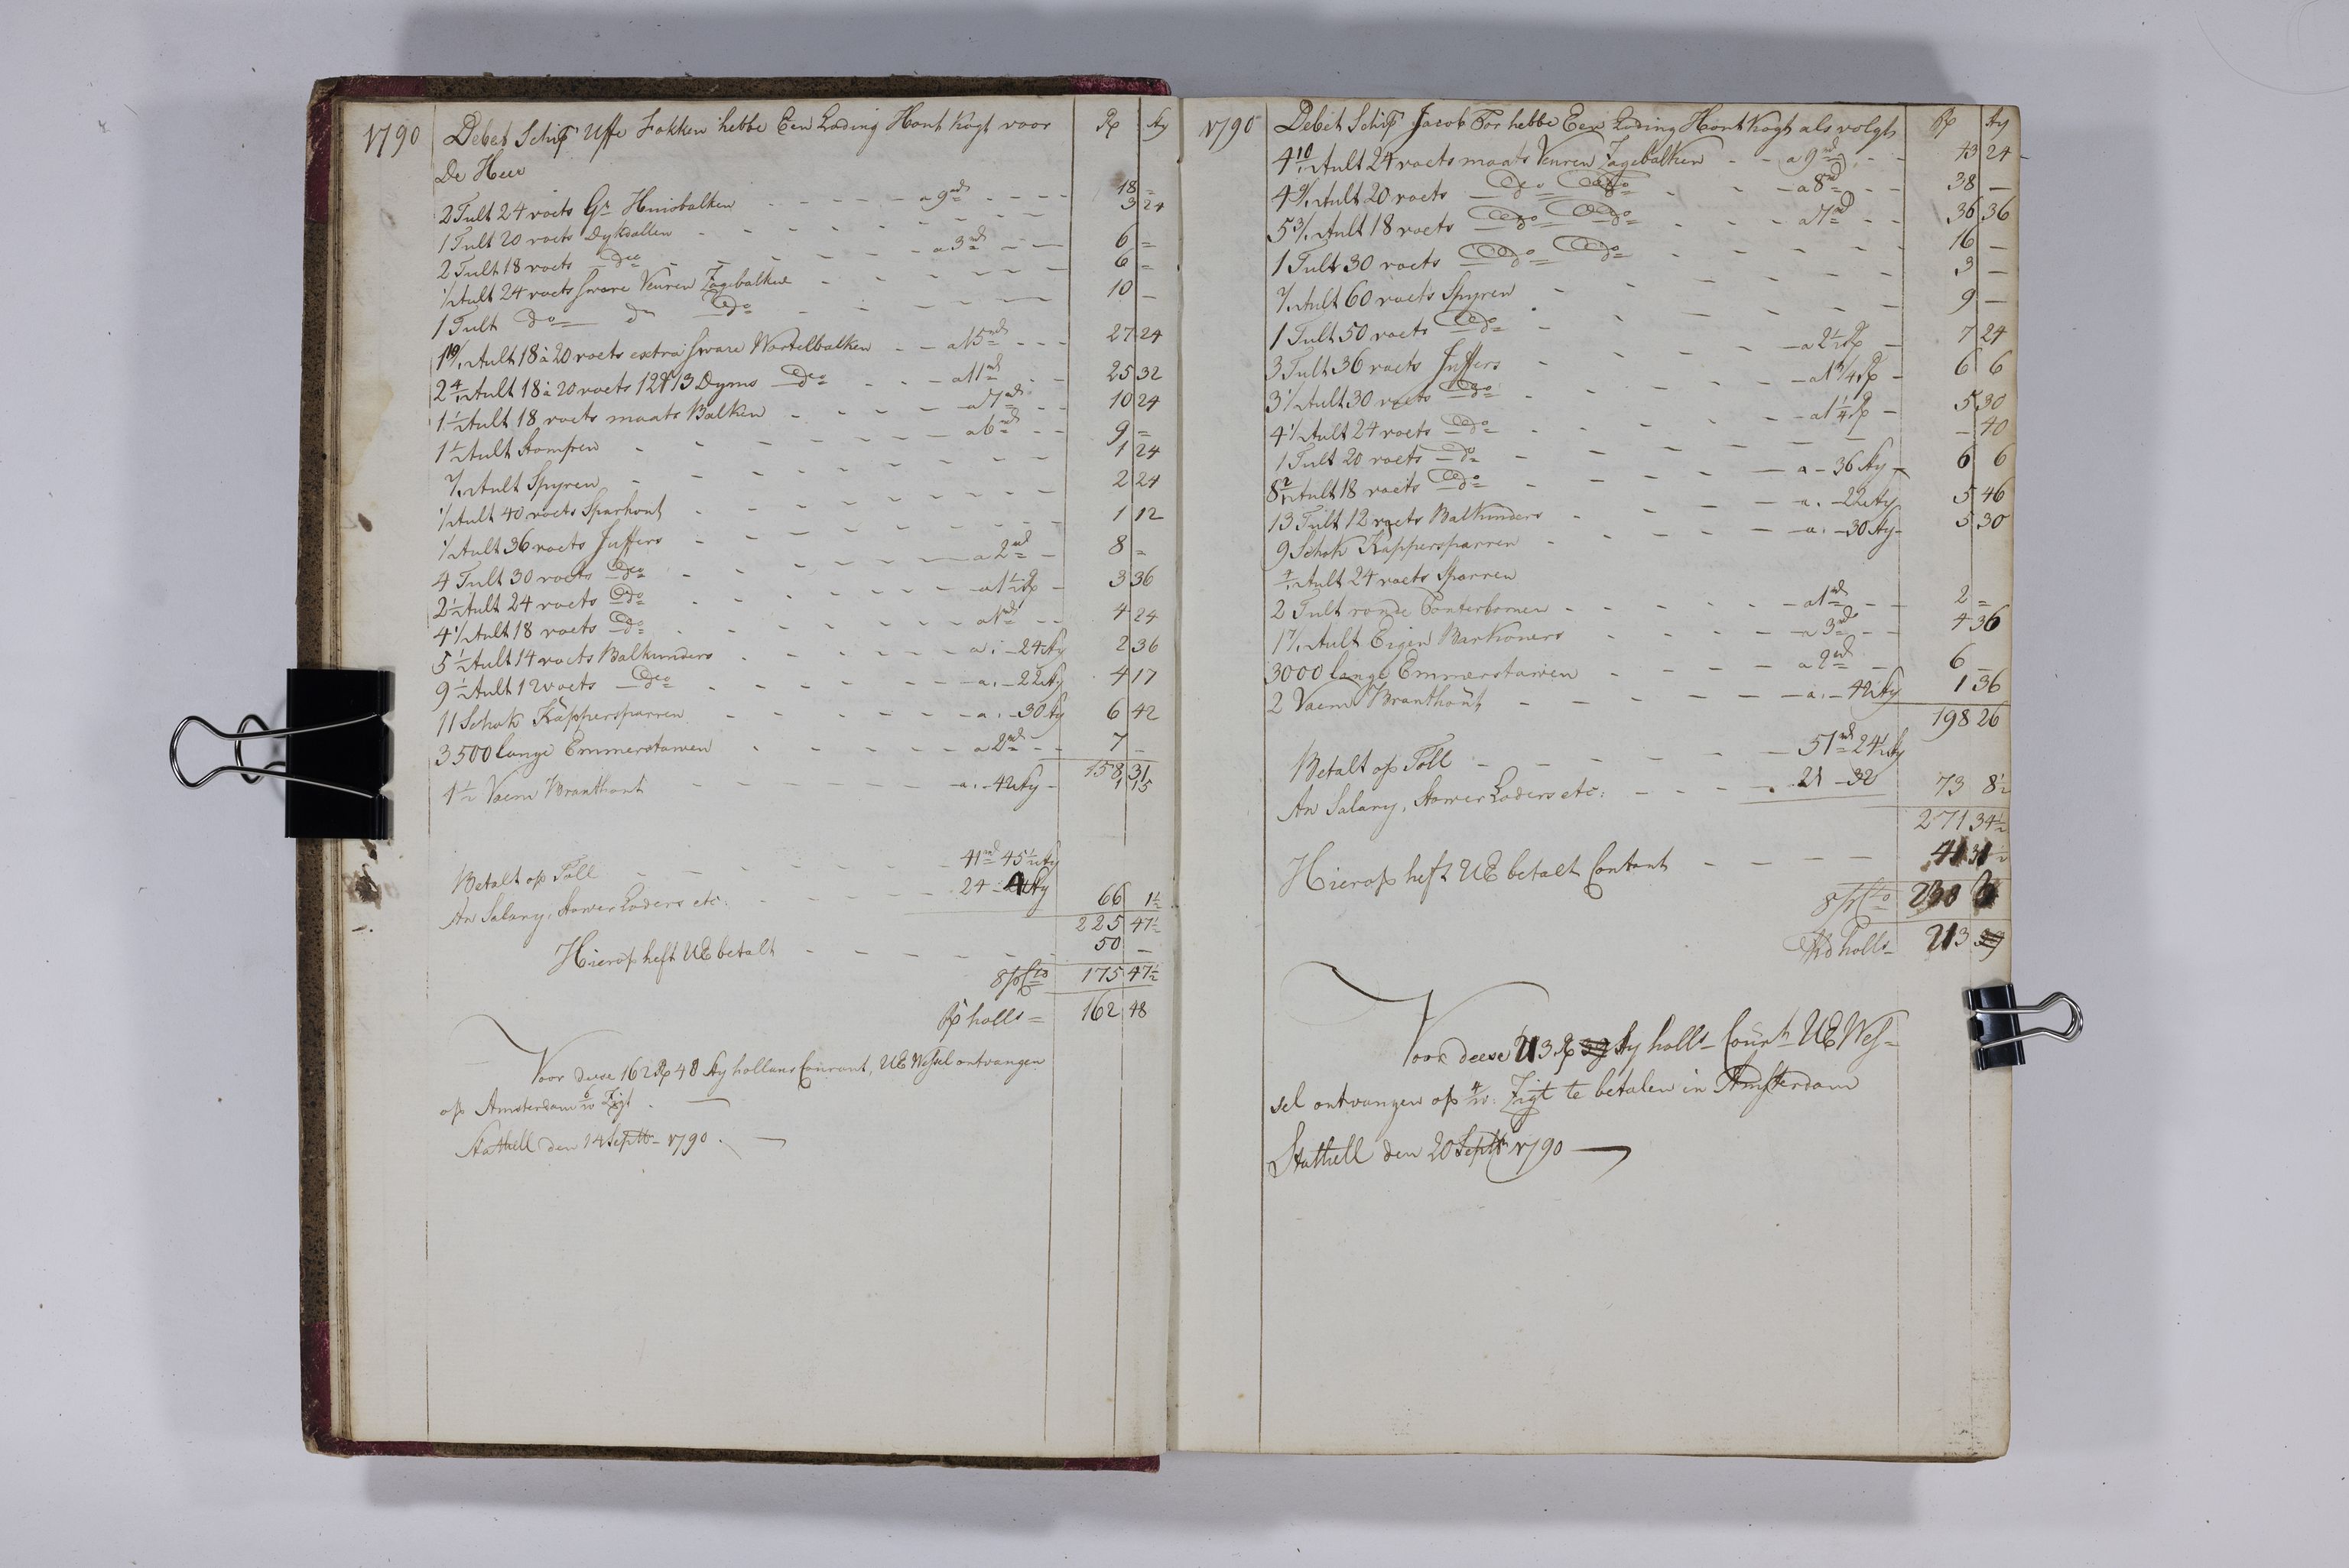 1790 Debet Schip Uffe Fokken hebbe Een Loding Hout kogt voor R/ Sty
De Heer
2 Tult 24 voets Gr. Huisbalken a 9 rd 18 =
1 Tult 20 voets Dykdallen 3 24
2 Tult 18 voets do a 3 rd 6 =
1/2 Tult 24 voets sware Veuren Zagebalken 6 =
1 Tult do do do 10 —
1 10/12 Tult 18 a 20 voets extra sware Wortelbalken a 15 rd 27 24
2 4/12 Tult 18 a 20 voets 12 a 13 Dyms do a 11 rd 25 32
1 1/2 Tult 18 voets maats Balken a 7 rd 10 24
1 1/2 Tult Stompen a 6 rd 9 =
Tult Spyren 1 24
1/2 Tult 40 voets Sparhout 2 24
1/2 Tult 36 voets Juffers 1 12
4 Tult 30 voets do a 2 rd 8 =
2 1/2 Tult 24 voets do a 1 1/2 R/ 3 36
4 1/2 Tult 18 voets do a 1 rd 4 24
5 1/2 Tult 14 voets Balkunders a: 24 Sty 2 36
9 1/2 Tult 12 voets do a: 22 Sty 4 17
11 Schok Kappersparren a: 30 Sty 6 42
3500 lange Emmerstawen a 2 rd 7 —
1 1/2 Vaem Branthout a: 42 Sty 1 15
158 31
Betalt op Toll 41 rd 45 1/2 Sty
An Salary, Stower Loders etc: 24 4 Sty 66 1 1/2
225 47 1/2
Hierop heft UE betalt 50 —
8 p Cto 175 47 1/2
R/ holls = 162 48
Voor deese 162 R/ 48 Sty hollans Courant, UE Wessel ontvangen
op Amsterdam Zigt
Stathell den 14 Septb 1790.
1790 Debet Schip Jacob Tor hebbe Een Loding Hout kogt als volgt R/ Sty
4 10/12 Tult 24 voets maats Veuren Zagebalken a 9 rd 43 24
4 9/12 Tult 20 voets do do a 8 rd 38 —
5 3/12 Tult 18 voets do do a 7 rd 36 36
1 Tult 30 voets do do 16 —
Tult 60 voets Spyren 3 —
1 Tult 50 voets do 9 —
3 Tult 36 voets Juffers a 2 1/2 R/ 7 24
3 1/2 Tult 30 voets do a 1 3/4 R/ 6 6
4 1/2 Tult 24 voets do a 1 1/4 R/ 5 30
1 Tult 20 voets do — 40
8 2/12 Tult 18 voets do a - 36 Sty 6 6
13 Tult 12 voets Balkunders a: - 22 Sty 5 46
9 Schok Kappersparren a: - 30 Sty 5 30
Tult 24 voets Sparren
2 Tult ronde Ponterbomen a 1 rd 2 =
1 7/12 Tult Eigen Barkoners a 3 rd 4 36
3000 lange Emmerstawen a 2 rd 6 —
2 Vaem Branthout a: - 42 Sty 1 36
198 26
Betalt op Toll 51 rd 24 1/2 Sty
An Salary, Stower Loders etc: 21 - 32 73 8 1/2
271 34 1/2
Hierop heft UE betalt Contant
8 p Cto
holls 213 39
Voor deese 213 R/ 39 Sty holls Court UE Wes=
sel ontvangen op Zigt te betalen in Amsterdam
Stathell den 20 Septb 1790